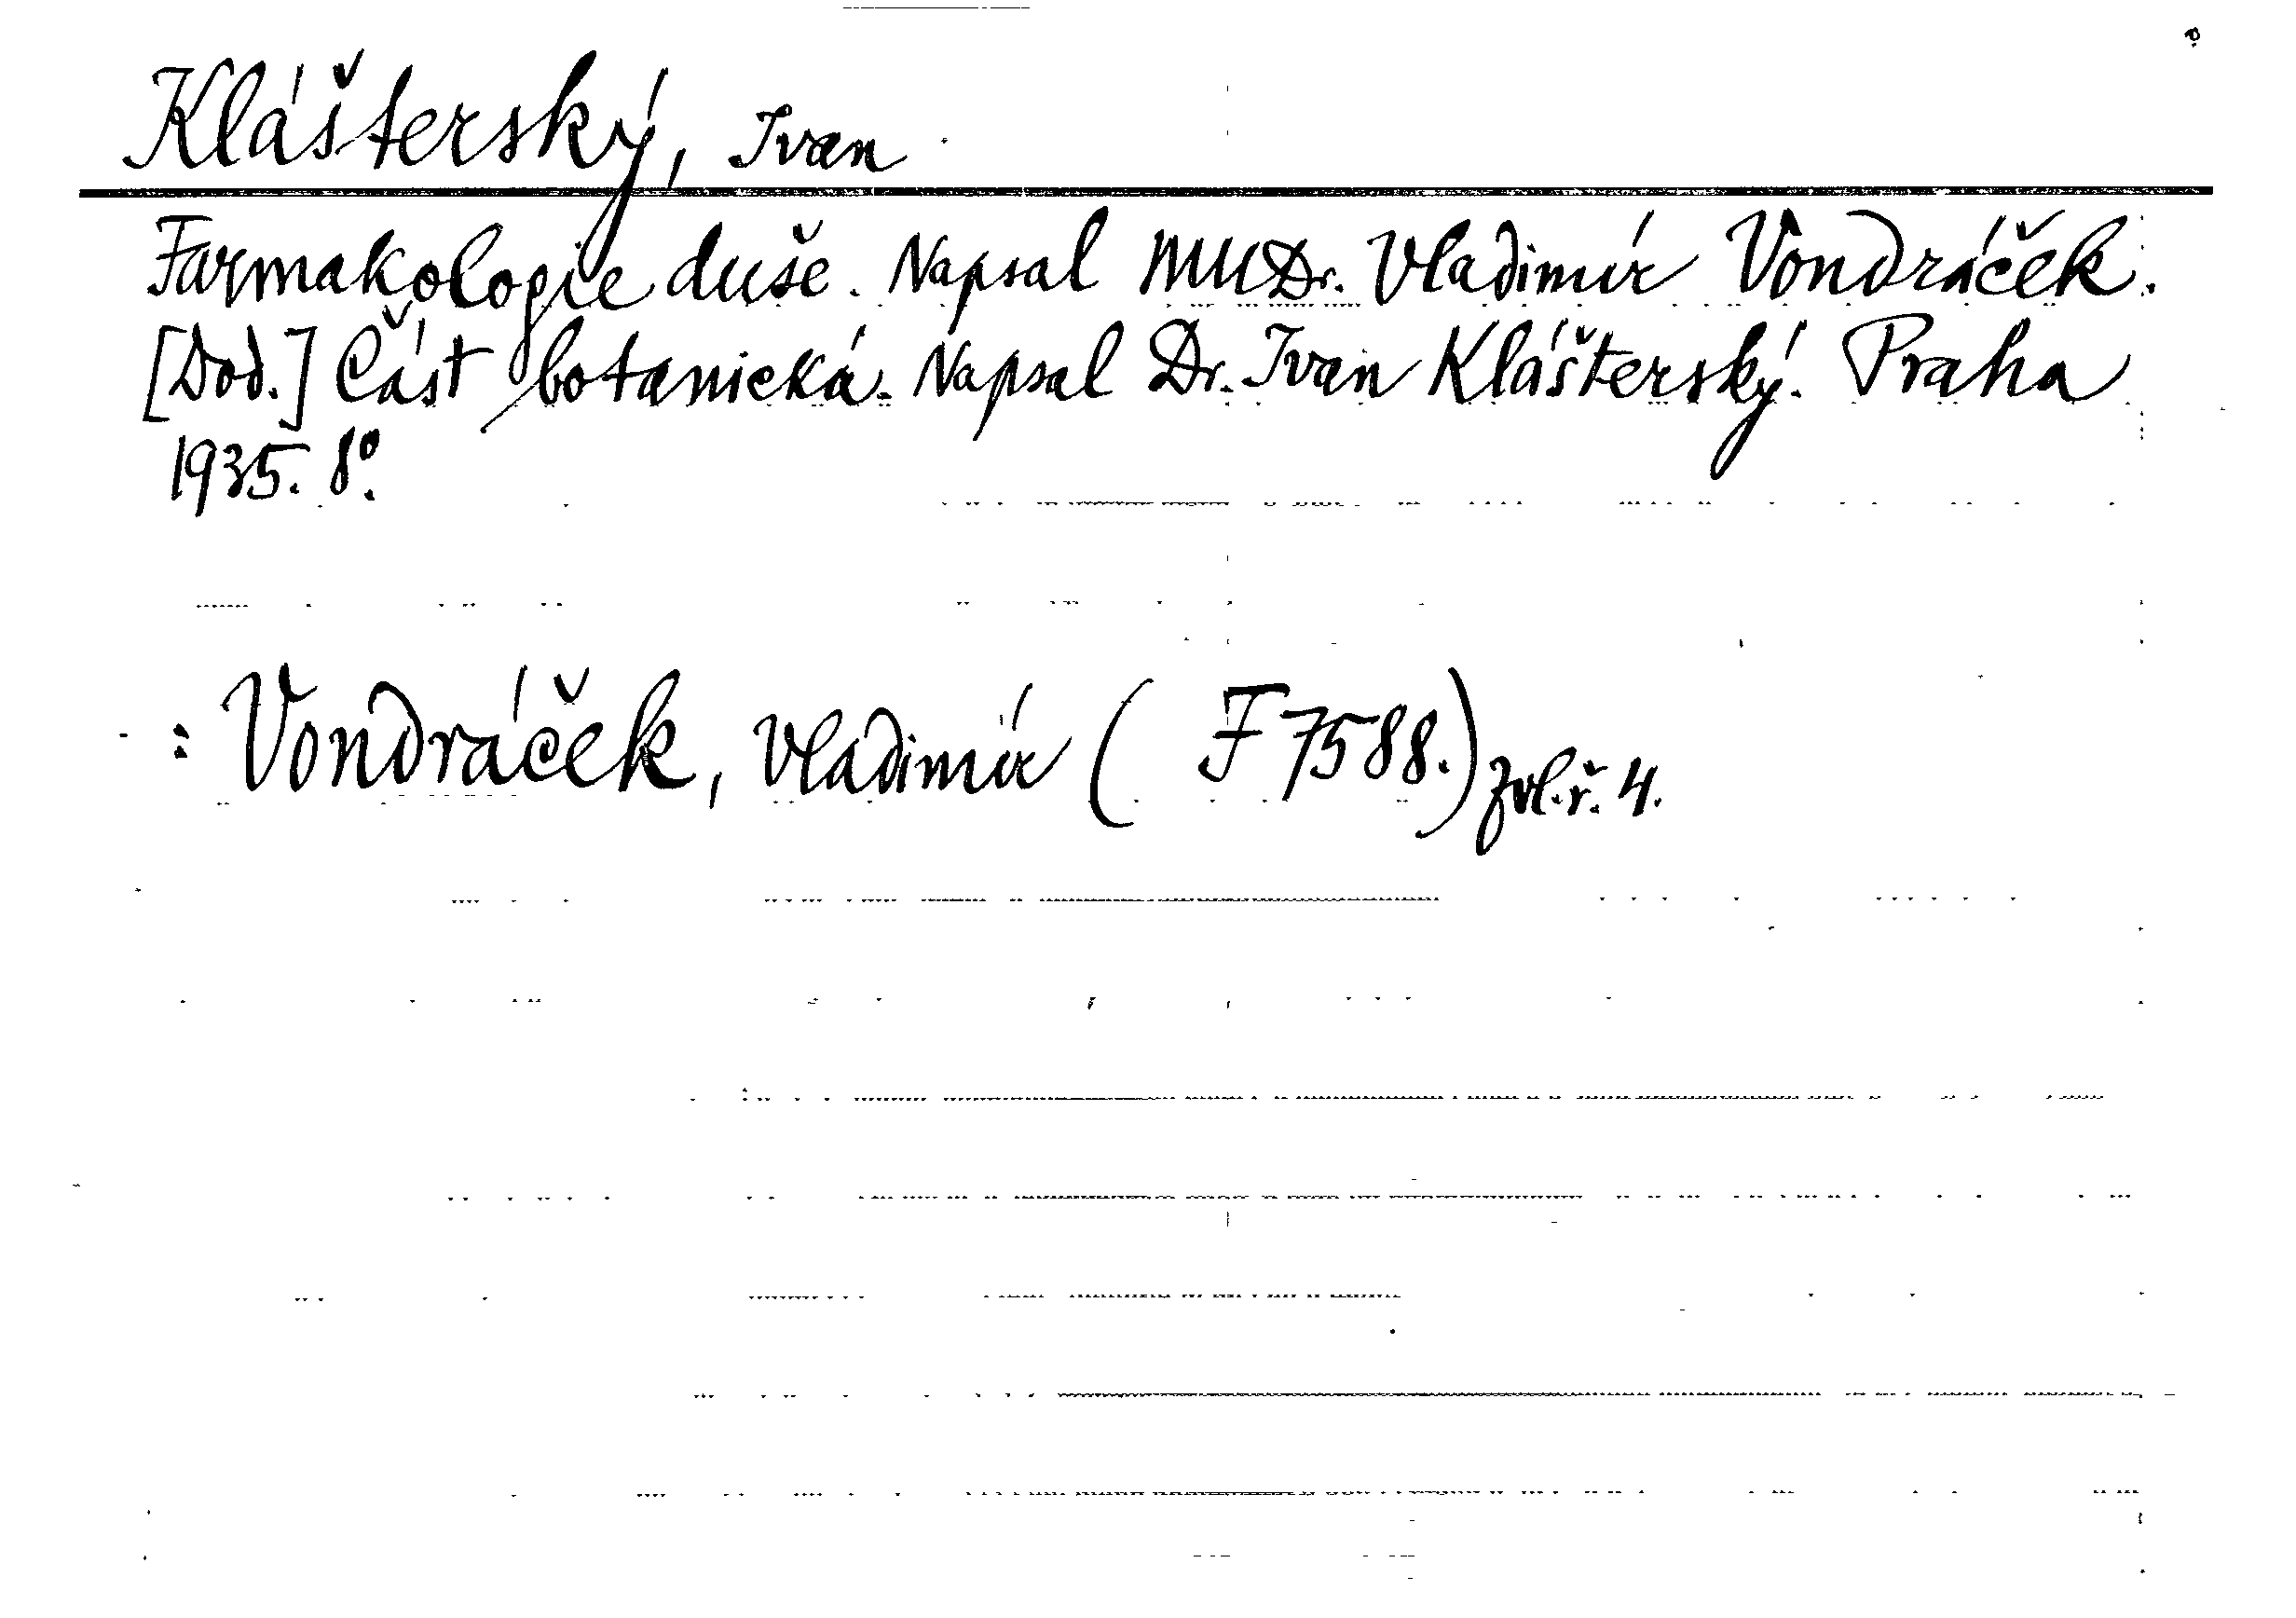 Klášterský, Ivan
Farmakologie duše. Napsal MUDr. Vladimír Vondráček.
[Dod.] Část botanická. Napsal Dr. Ivan Klášterský. Praha
1935. 8°.
: Vondráček, Vladimír ( F 7588.) zvl.ř. 4.